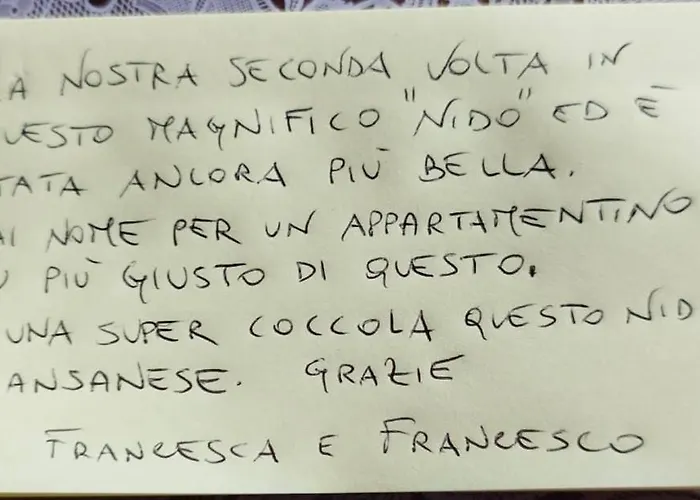 A NOSTRA SECONDA VOLTA IN
UESTO MAGNIFICO "NIDO" ED È
TATA ANCORA PIÙ BELLA.
AI NOME PER UN APPARTAMENTINO
PIÙ GIUSTO DI QUESTO.
UNA SUPER COCCOLA QUESTO NID
ANSANESE. GRAZIE
FRANCESCA E FRANCESCO